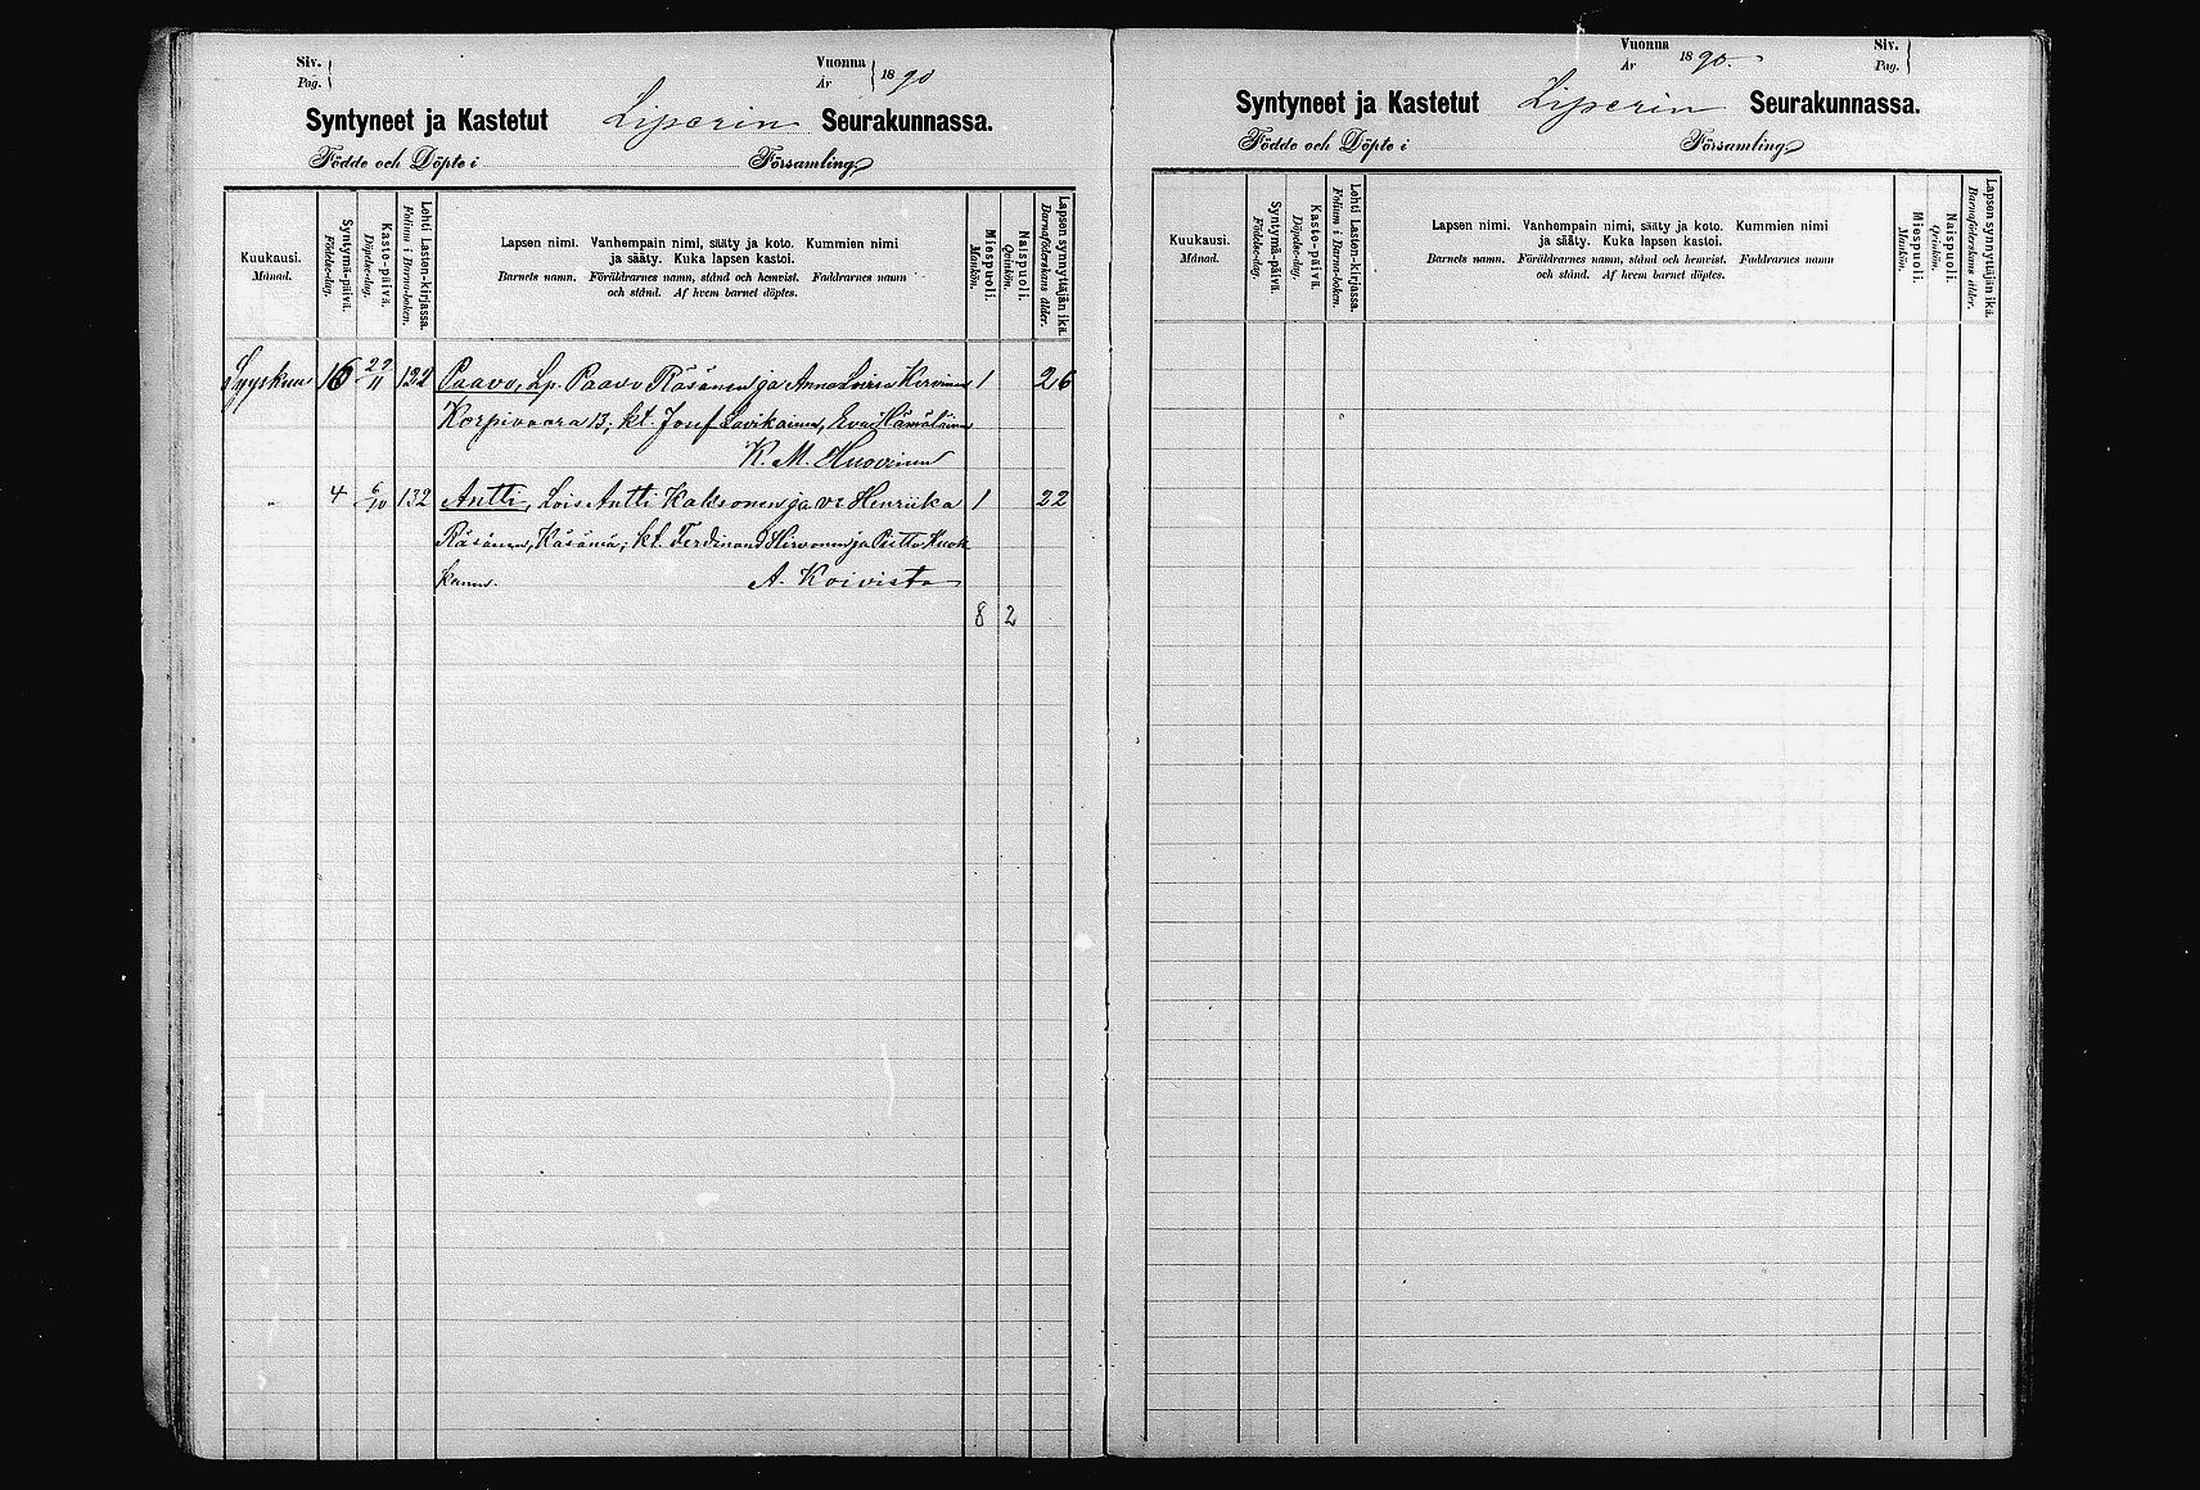 Siv.
Pag.
Vuonna
År
1890
Syntyneet ja Kastetut Liperin Seurakunnassa.
Födde och Döpte i Församling
Kuukausi.
Månad.
Syntymä-päivä.
Födelse-dag.
Kasto-päivä.
Döpelse-dag.
Lehti Lasten-kirjassa.
Folium i Barna-boken.
Lapsen nimi. Vanhempain nimi, sääty ja koto. Kummien nimi
ja sääty. Kuka lapsen kastoi.
Barnets namn. Föräldrarnes namn, stånd och hemvist. Faddrarnes namn
och stånd. Af hvem barnet döptes.
Miespuoli.
Mankön.
Naispuoli.
Qvinkön.
Lapsen synnyttäjän ikä.
Barnaföderskans ålder.
Syyskuu 16 29/11 132 Paavo, Lp. Paavo Räsänen ja Anna Loviisa Kervinen 1 26
Korpivaara 13; kt. Josef Lavikainen, Eva Hämäläinen
K. M. Huovinen
" 4 6/10 132 Antti, Lois Antti Kaksonen ja vo Henriika 1 22
Räsänen, Käsämä; kt. Ferdinand Hirvonen ja Pietto Kuok
kanen. A. Koivisto
8 2
Vuonna
År
1890.
Siv.
Pag.
Syntyneet ja Kastetut Liperin Seurakunnassa.
Födde och Döpte i Församling
Kuukausi.
Månad.
Syntymä-päivä.
Födelse-dag.
Kasto-päivä.
Döpelse-dag.
Lehti Lasten-kirjassa.
Folium i Barna-boken.
Lapsen nimi. Vanhempain nimi, sääty ja koto. Kummien nimi
ja sääty. Kuka lapsen kastoi.
Barnets namn. Föräldrarnes namn, stånd och hemvist. Faddrarnes namn
och stånd. Af hvem barnet döptes.
Miespuoli.
Mankön.
Naispuoli.
Qvinkön.
Lapsen synnyttäjän ikä.
Barnaföderskans ålder.